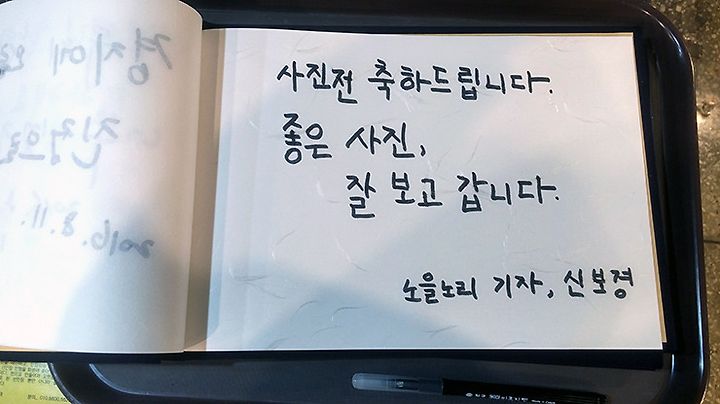 사진전 축하드립니다.
좋은 사진,
잘 보고 갑니다.
노을노리 기자, 신보경
2016. 8. 11.